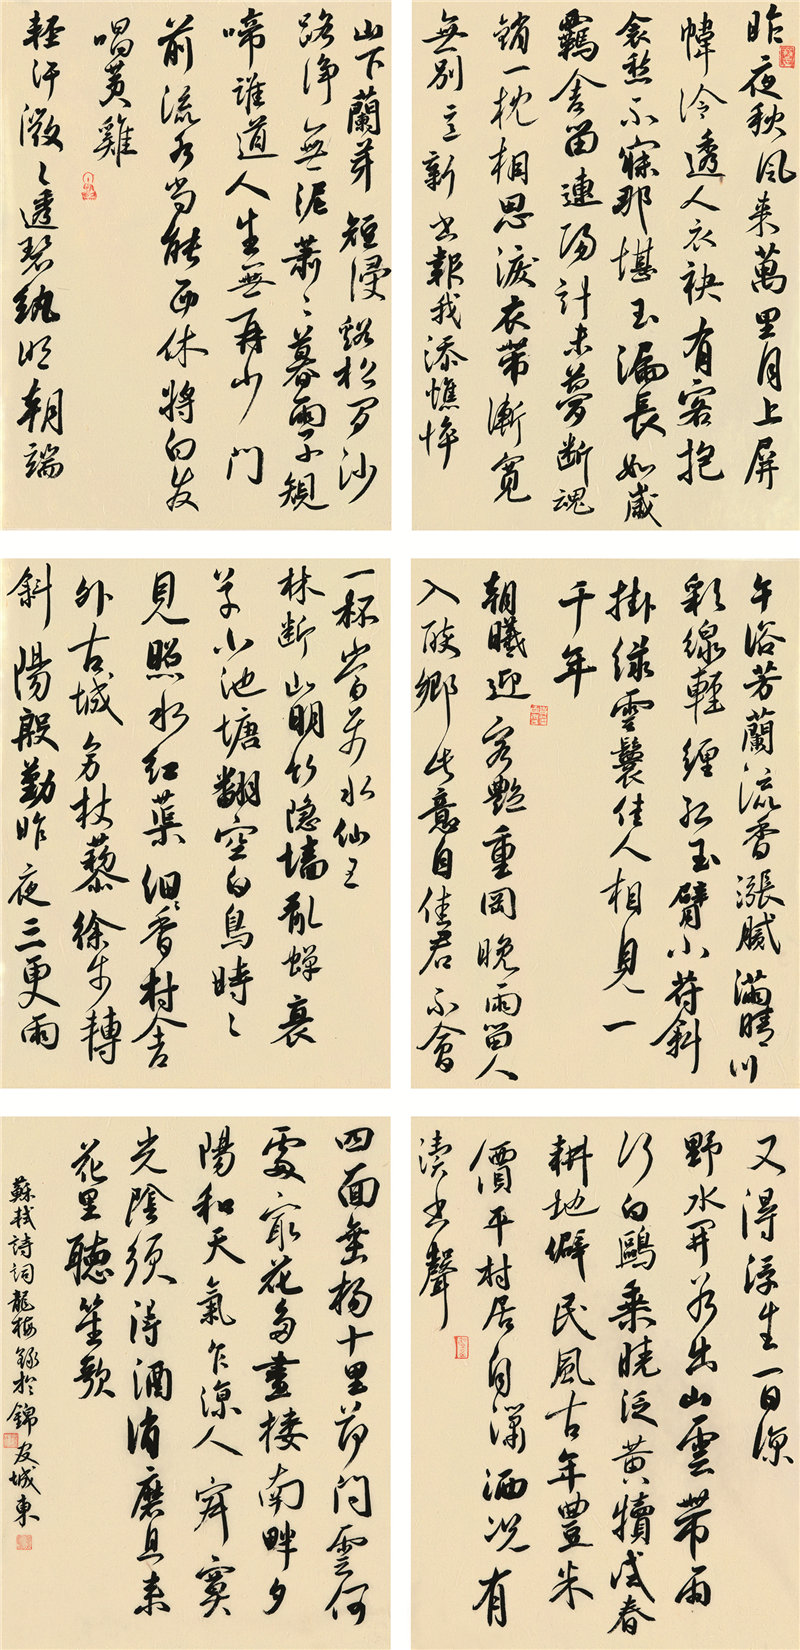 昨夜秋風來萬里月上屏
幃冷透人衣袂有客抱
衾愁不寐那堪玉漏長如歲
羈舍留連歸計未夢斷魂
銷一枕相思淚衣帶漸寬
無別意新書報我添憔悴
山下蘭芽短浸谿松間沙
路淨無泥蕭蕭暮雨子規
啼誰道人生無再少門
前流水尚能西休將白发
唱黃雞
輕汗微微透碧紈明朝端
午浴芳蘭流香漲膩滿晴川
彩線輕纏紅玉臂小符斜
掛綠雲鬟佳人相見一
千年
朝曦迎客艷重岡晚雨留人
入醉鄉此意自佳君不會
一杯當屬水仙王
林斷山明竹隱墻亂蟬衰
草小池塘翻空白鳥時時
見照水紅蕖細細香村舍
外古城旁杖藜徐步轉
斜陽殷勤昨夜三更雨
又得浮生一日涼
野水開冰出山雲帶雨
行白鷗乘曉泛黃犢試春
耕地僻民風古年豐米
價平村居自瀟洒況有
讀書聲
四面垂楊十里荷問雲何
處最花多畫樓南畔夕
陽和天氣乍涼人寂寞
光陰須得酒消磨且來
花里聽笙歌
蘇軾詩詞龍梅錄於錦友城東